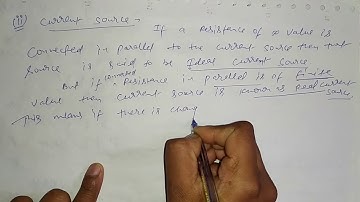 (ii) Current Source:- If a Resistance of ∞ value is
Connected in parallel to the current source then that
source is said to be Ideal Current Source
But if connected a Resistance in parallel is of finite
value then current source is known as Real current
source.
This means if there is chang